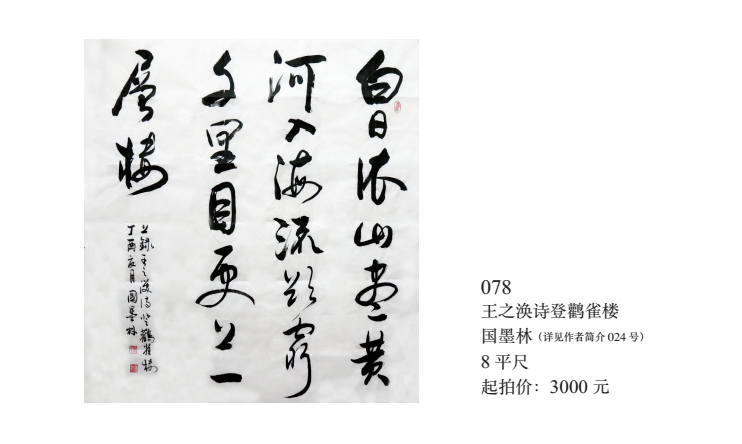 白日依山盡黄
河入海流欲窮
千里目更上一
層樓
上録王之渙詩登鸛雀樓
丁酉亥月国墨林
078
王之涣诗登鹳雀楼
国墨林（详见作者简介 024 号）
8 平尺
起拍价：3000 元